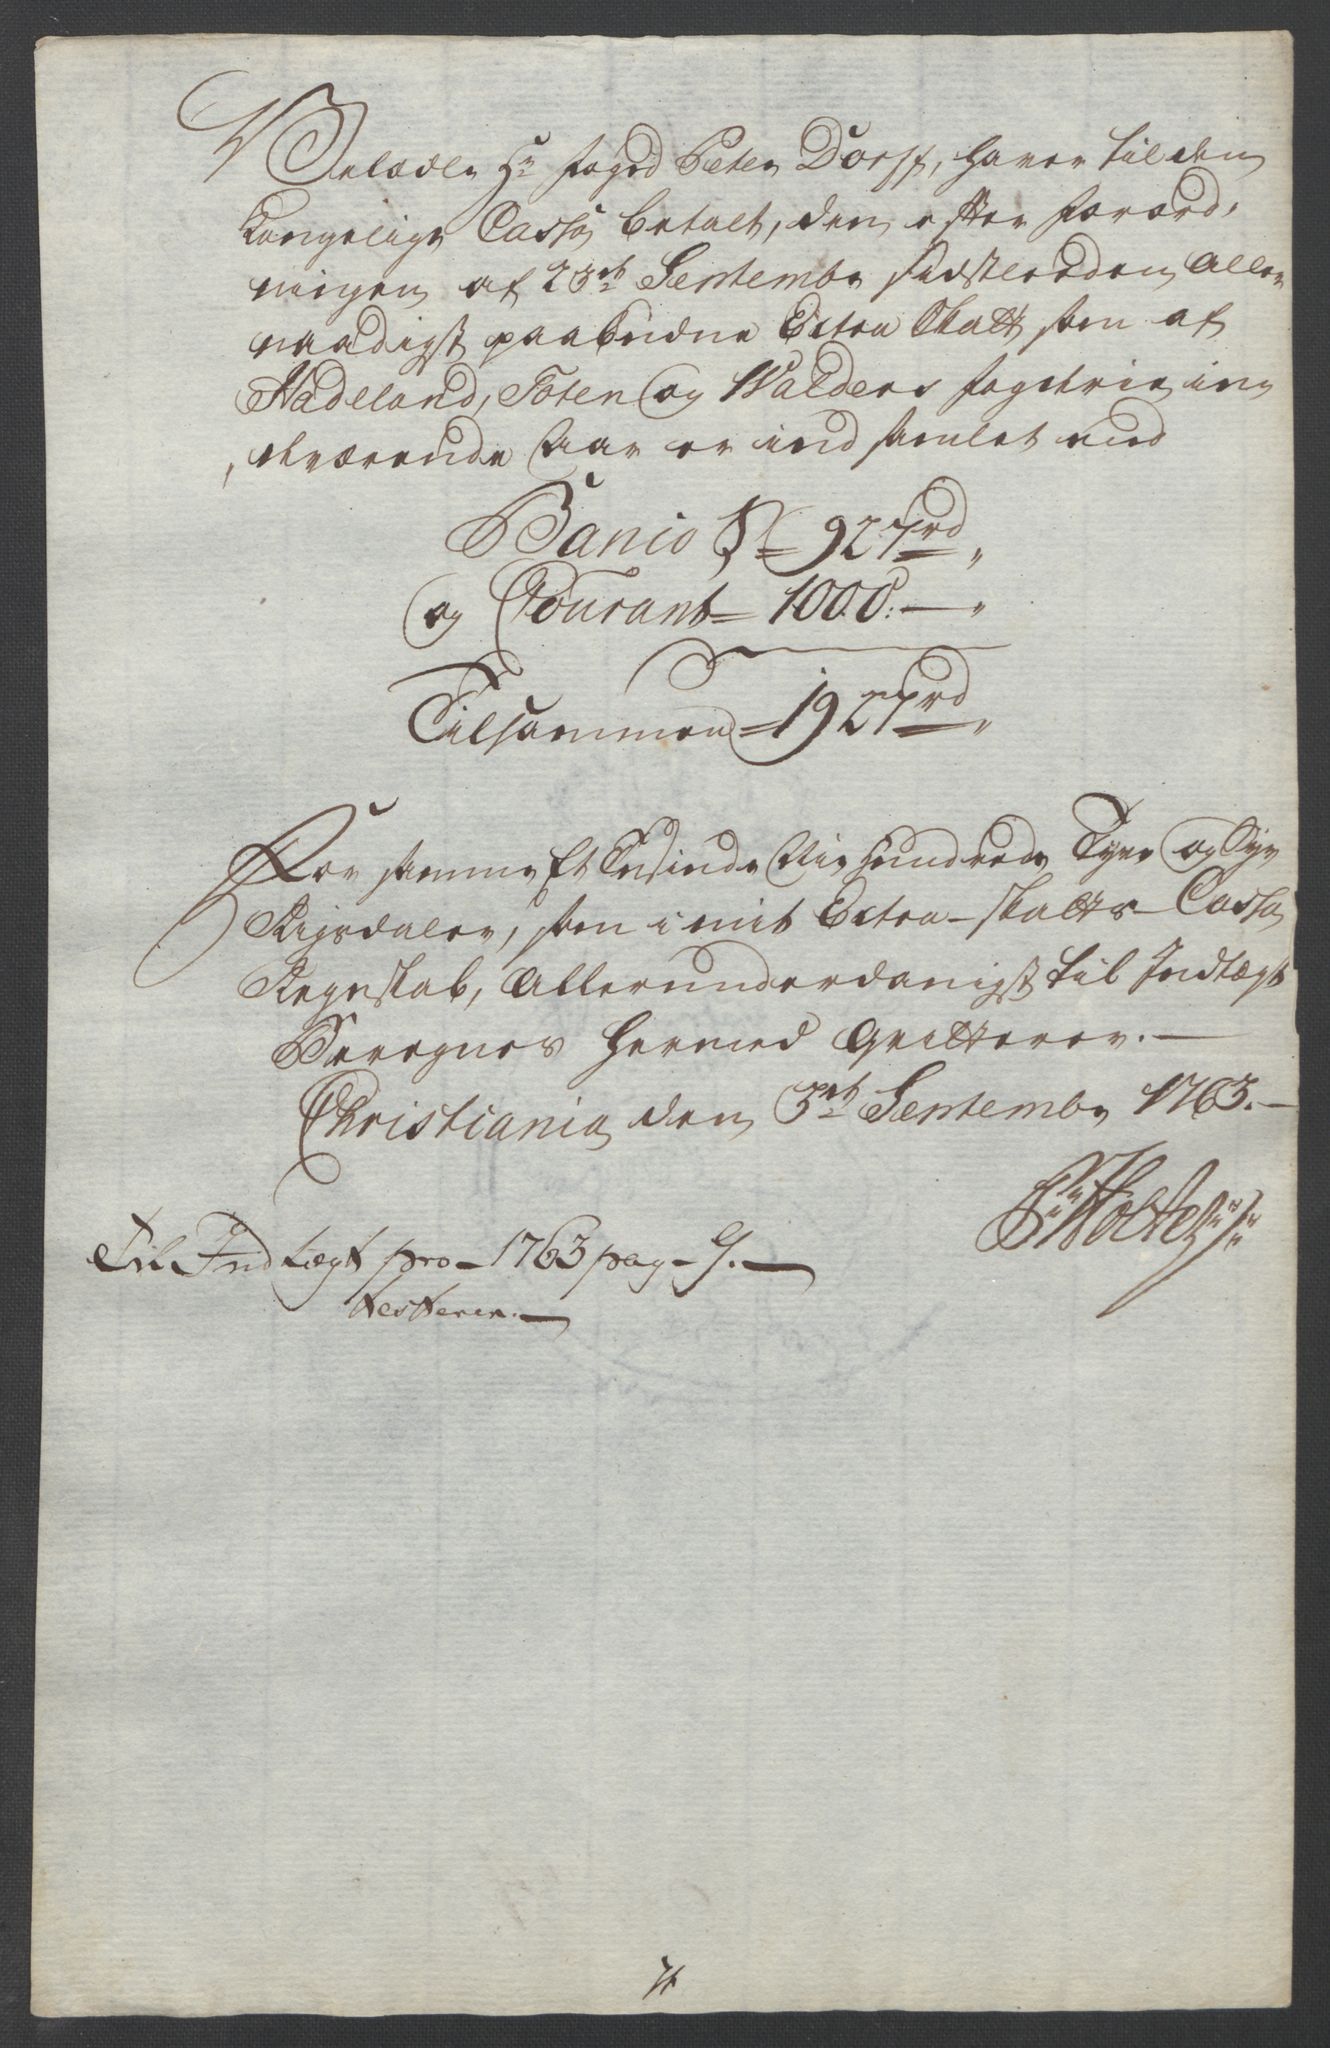 Velædle Hr Foged Peter Dorff, haver til den
Kongelige Cassa betalt, den efter Forord,
ningen af 23de Septembr sidstleeden Aller
naadigst paabudne Extra Skatt som af
Hadeland, Toten og Walders Fogderie in,
,dværende Aar er indsamlet med
Banco S = 927rd „
og Courant = 1000. — „
Tilsammen = 1927rd „
For samme Et Tusinde Nie Hundrede Tyve og Syv
Rigsdaler, som i mit Extra-Skatts-Cassa
Regnskab, Allerunderdanigst til Indtægt
Beregnes hermed Qvitterer. —
Christiania den 3de Septembr 1763. —
Holte
Til Indtægt pro - 1763 pag - 9. —
testerer. —